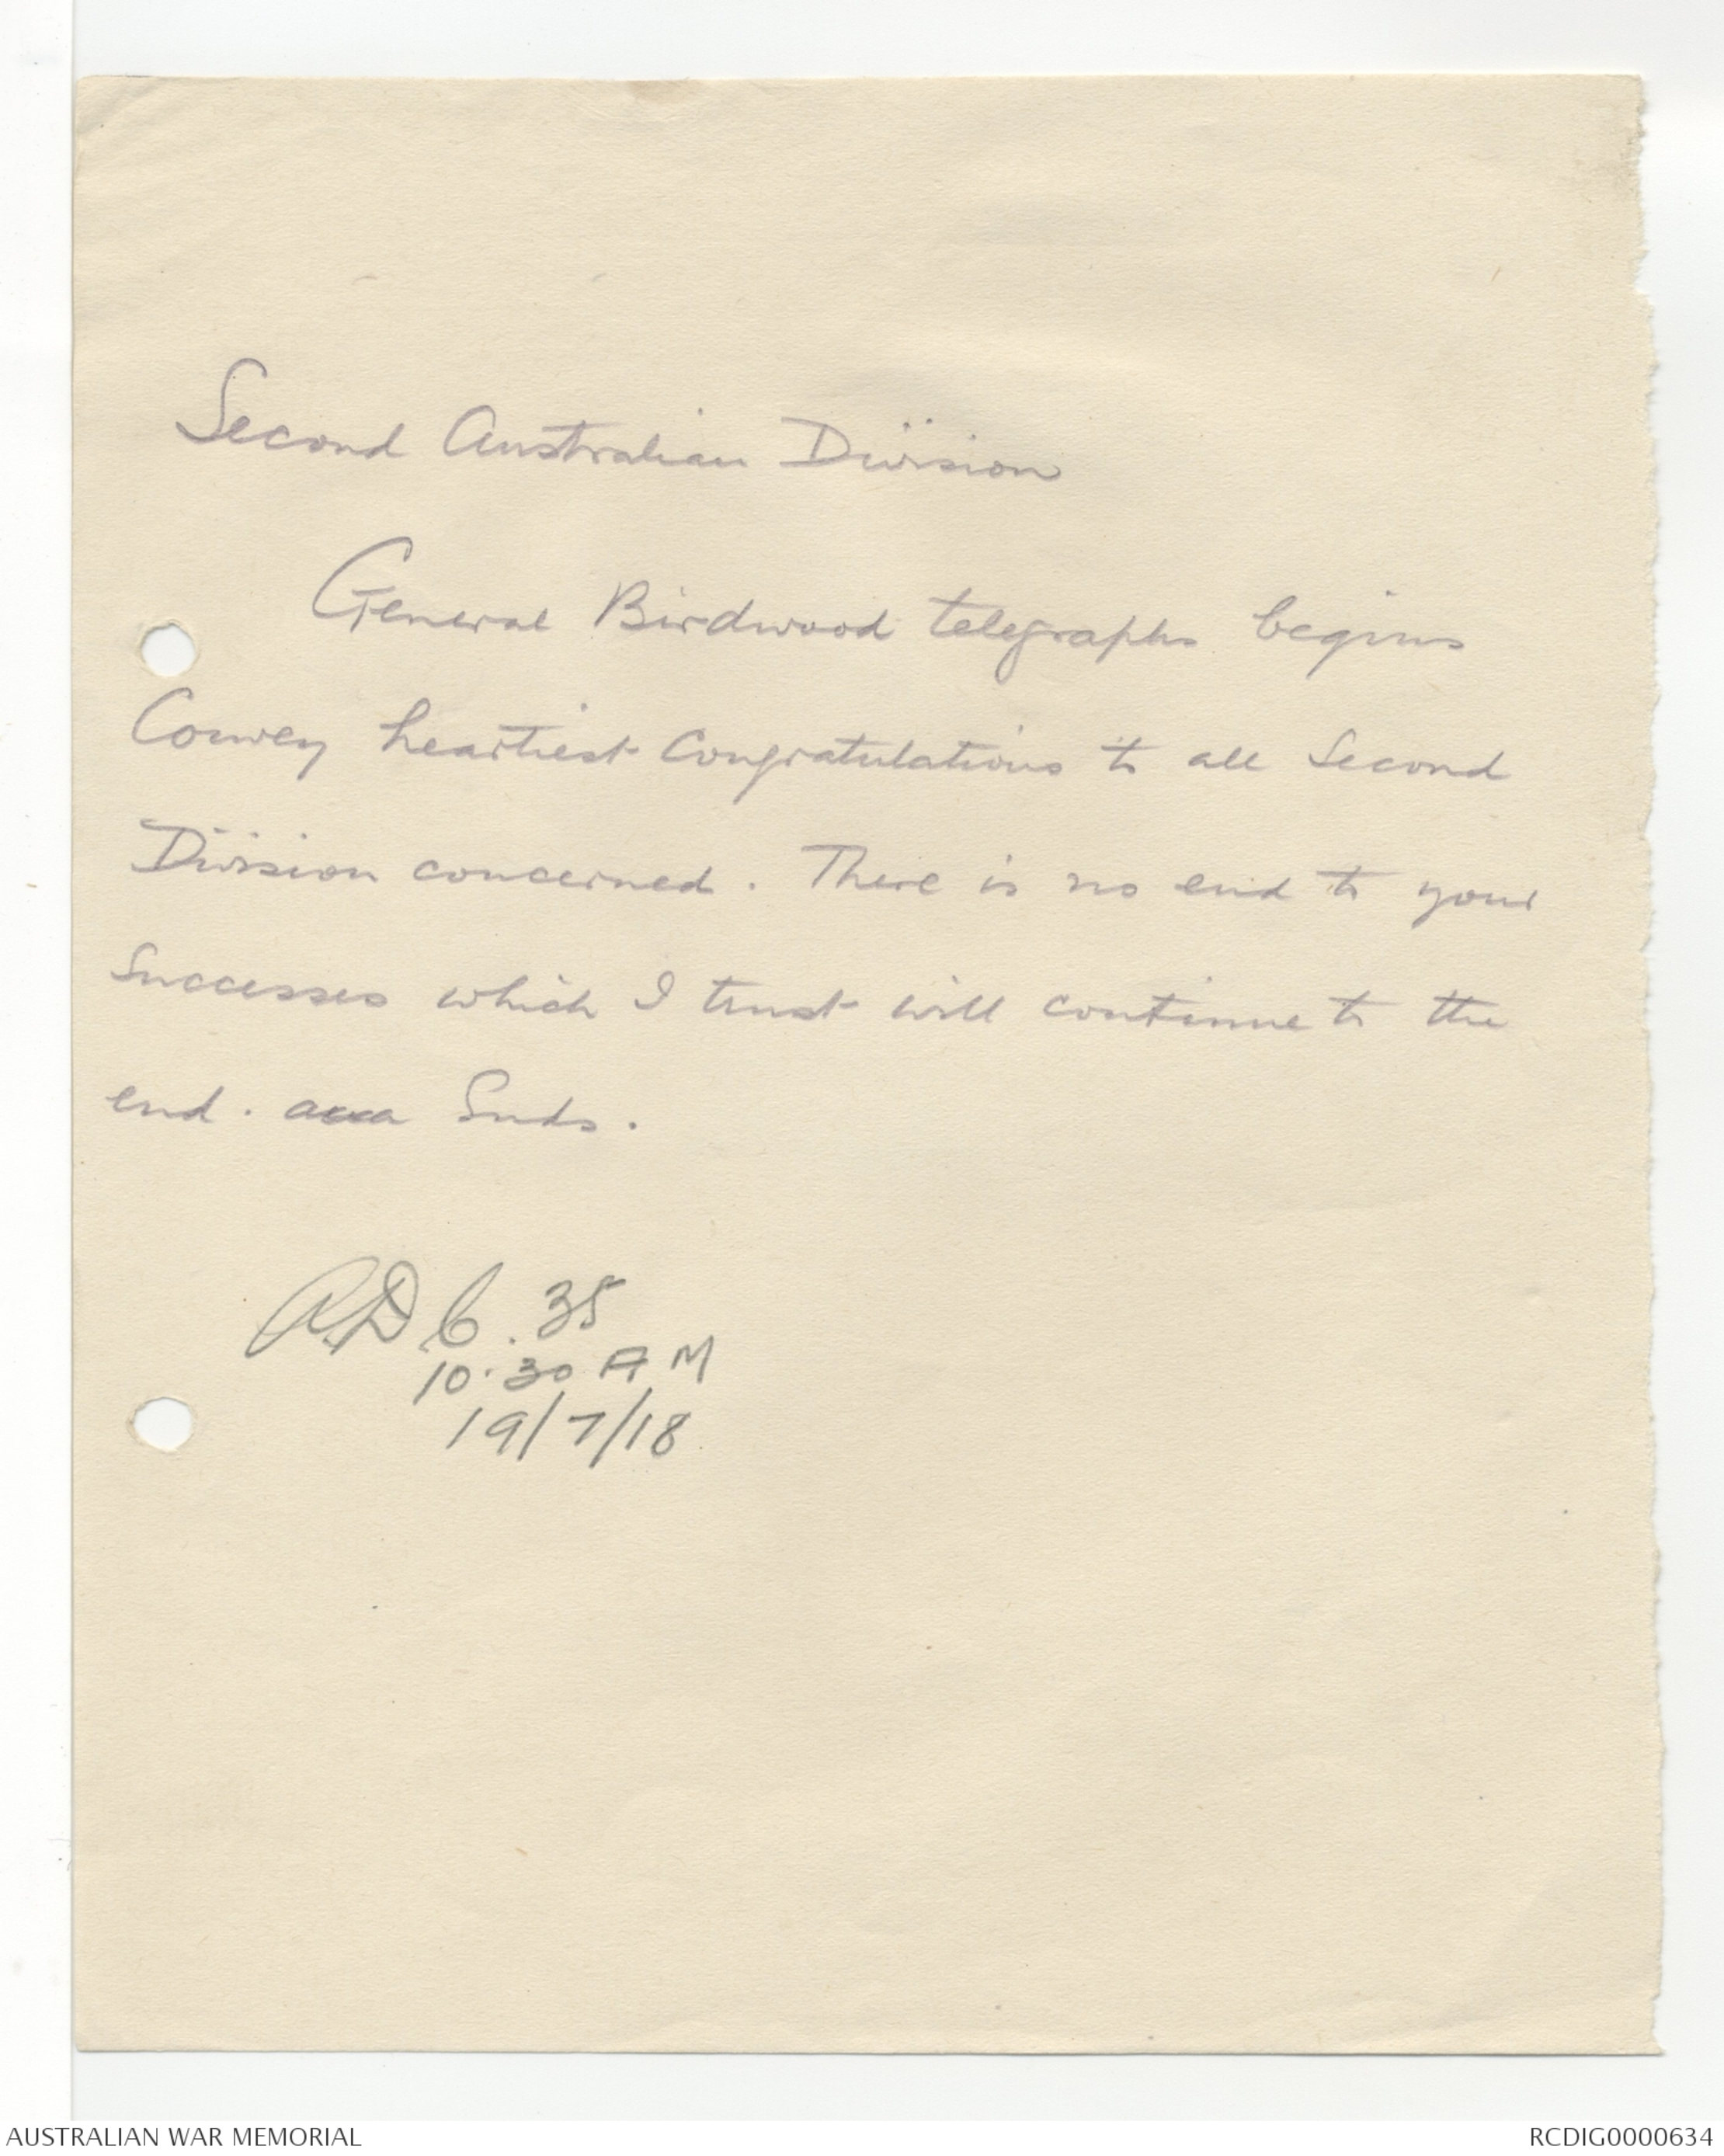 Second Australian Division
General Birdwood telegraphs begins
Convey heartiest Congratulations to all Second
Division concerned. There is no end to your
Successes which I trust will continue to the
end. aaa Ends.
35
10.30 A M
19/7/18
AUSTRALIAN WAR MEMORIAL
RCDIG0000634